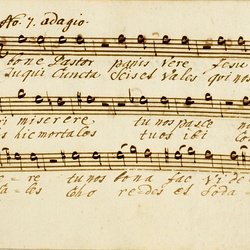 No. 7. adagio.
bone Pastor panis vere Jesu
Tu qui Cuncta scis et vales qui nos
miserere. tu nos pasce
hic mortales tuos ibi
= = re tu nos bona fac vide
= les Coho re des et Soda